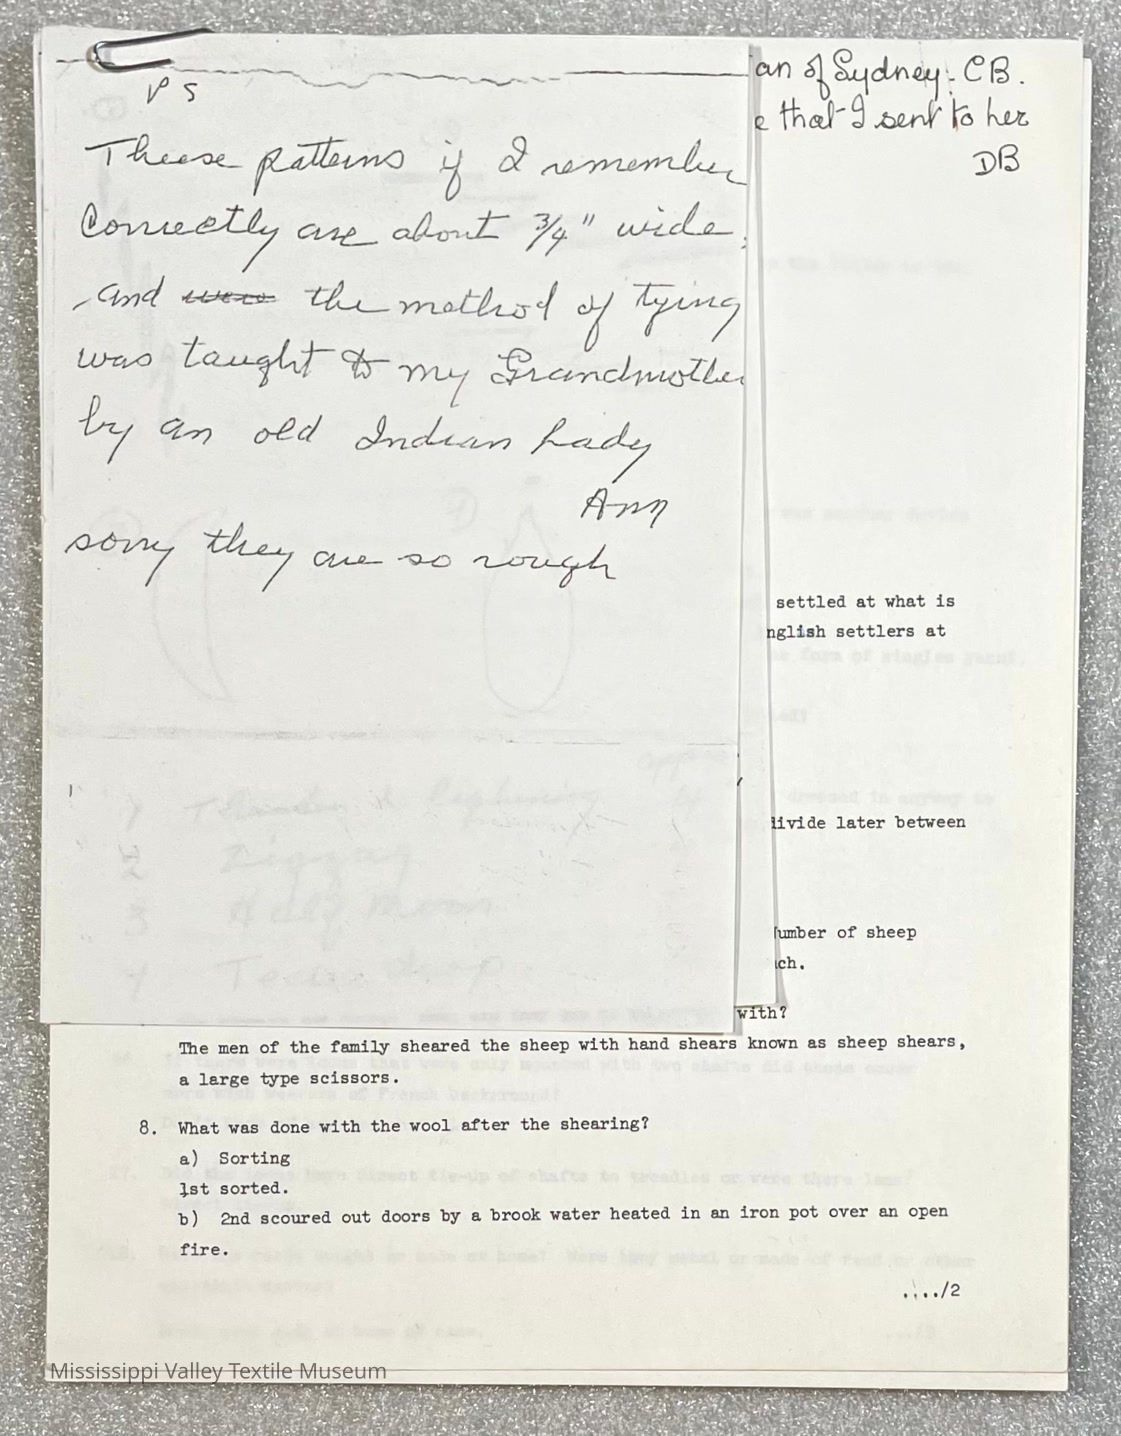 P S
Theese patterns if I remember
Correctly are about 3/4" wide,
and were the method of tying
was taught to my Grandmother
by an old Indian Lady
Ann
sorry they are so rough
an of Sydney. CB.
e that I sent to her
DB
settled at what is
nglish settlers at
divide later between
umber of sheep
ch.
with?
The men of the family sheared the sheep with hand shears known as sheep shears,
a large type scissors.
8. What was done with the wool after the shearing?
a) Sorting
1st sorted.
b) 2nd scoured out doors by a brook water heated in an iron pot over an open
fire.
..../2
Mississippi Valley Textile Museum